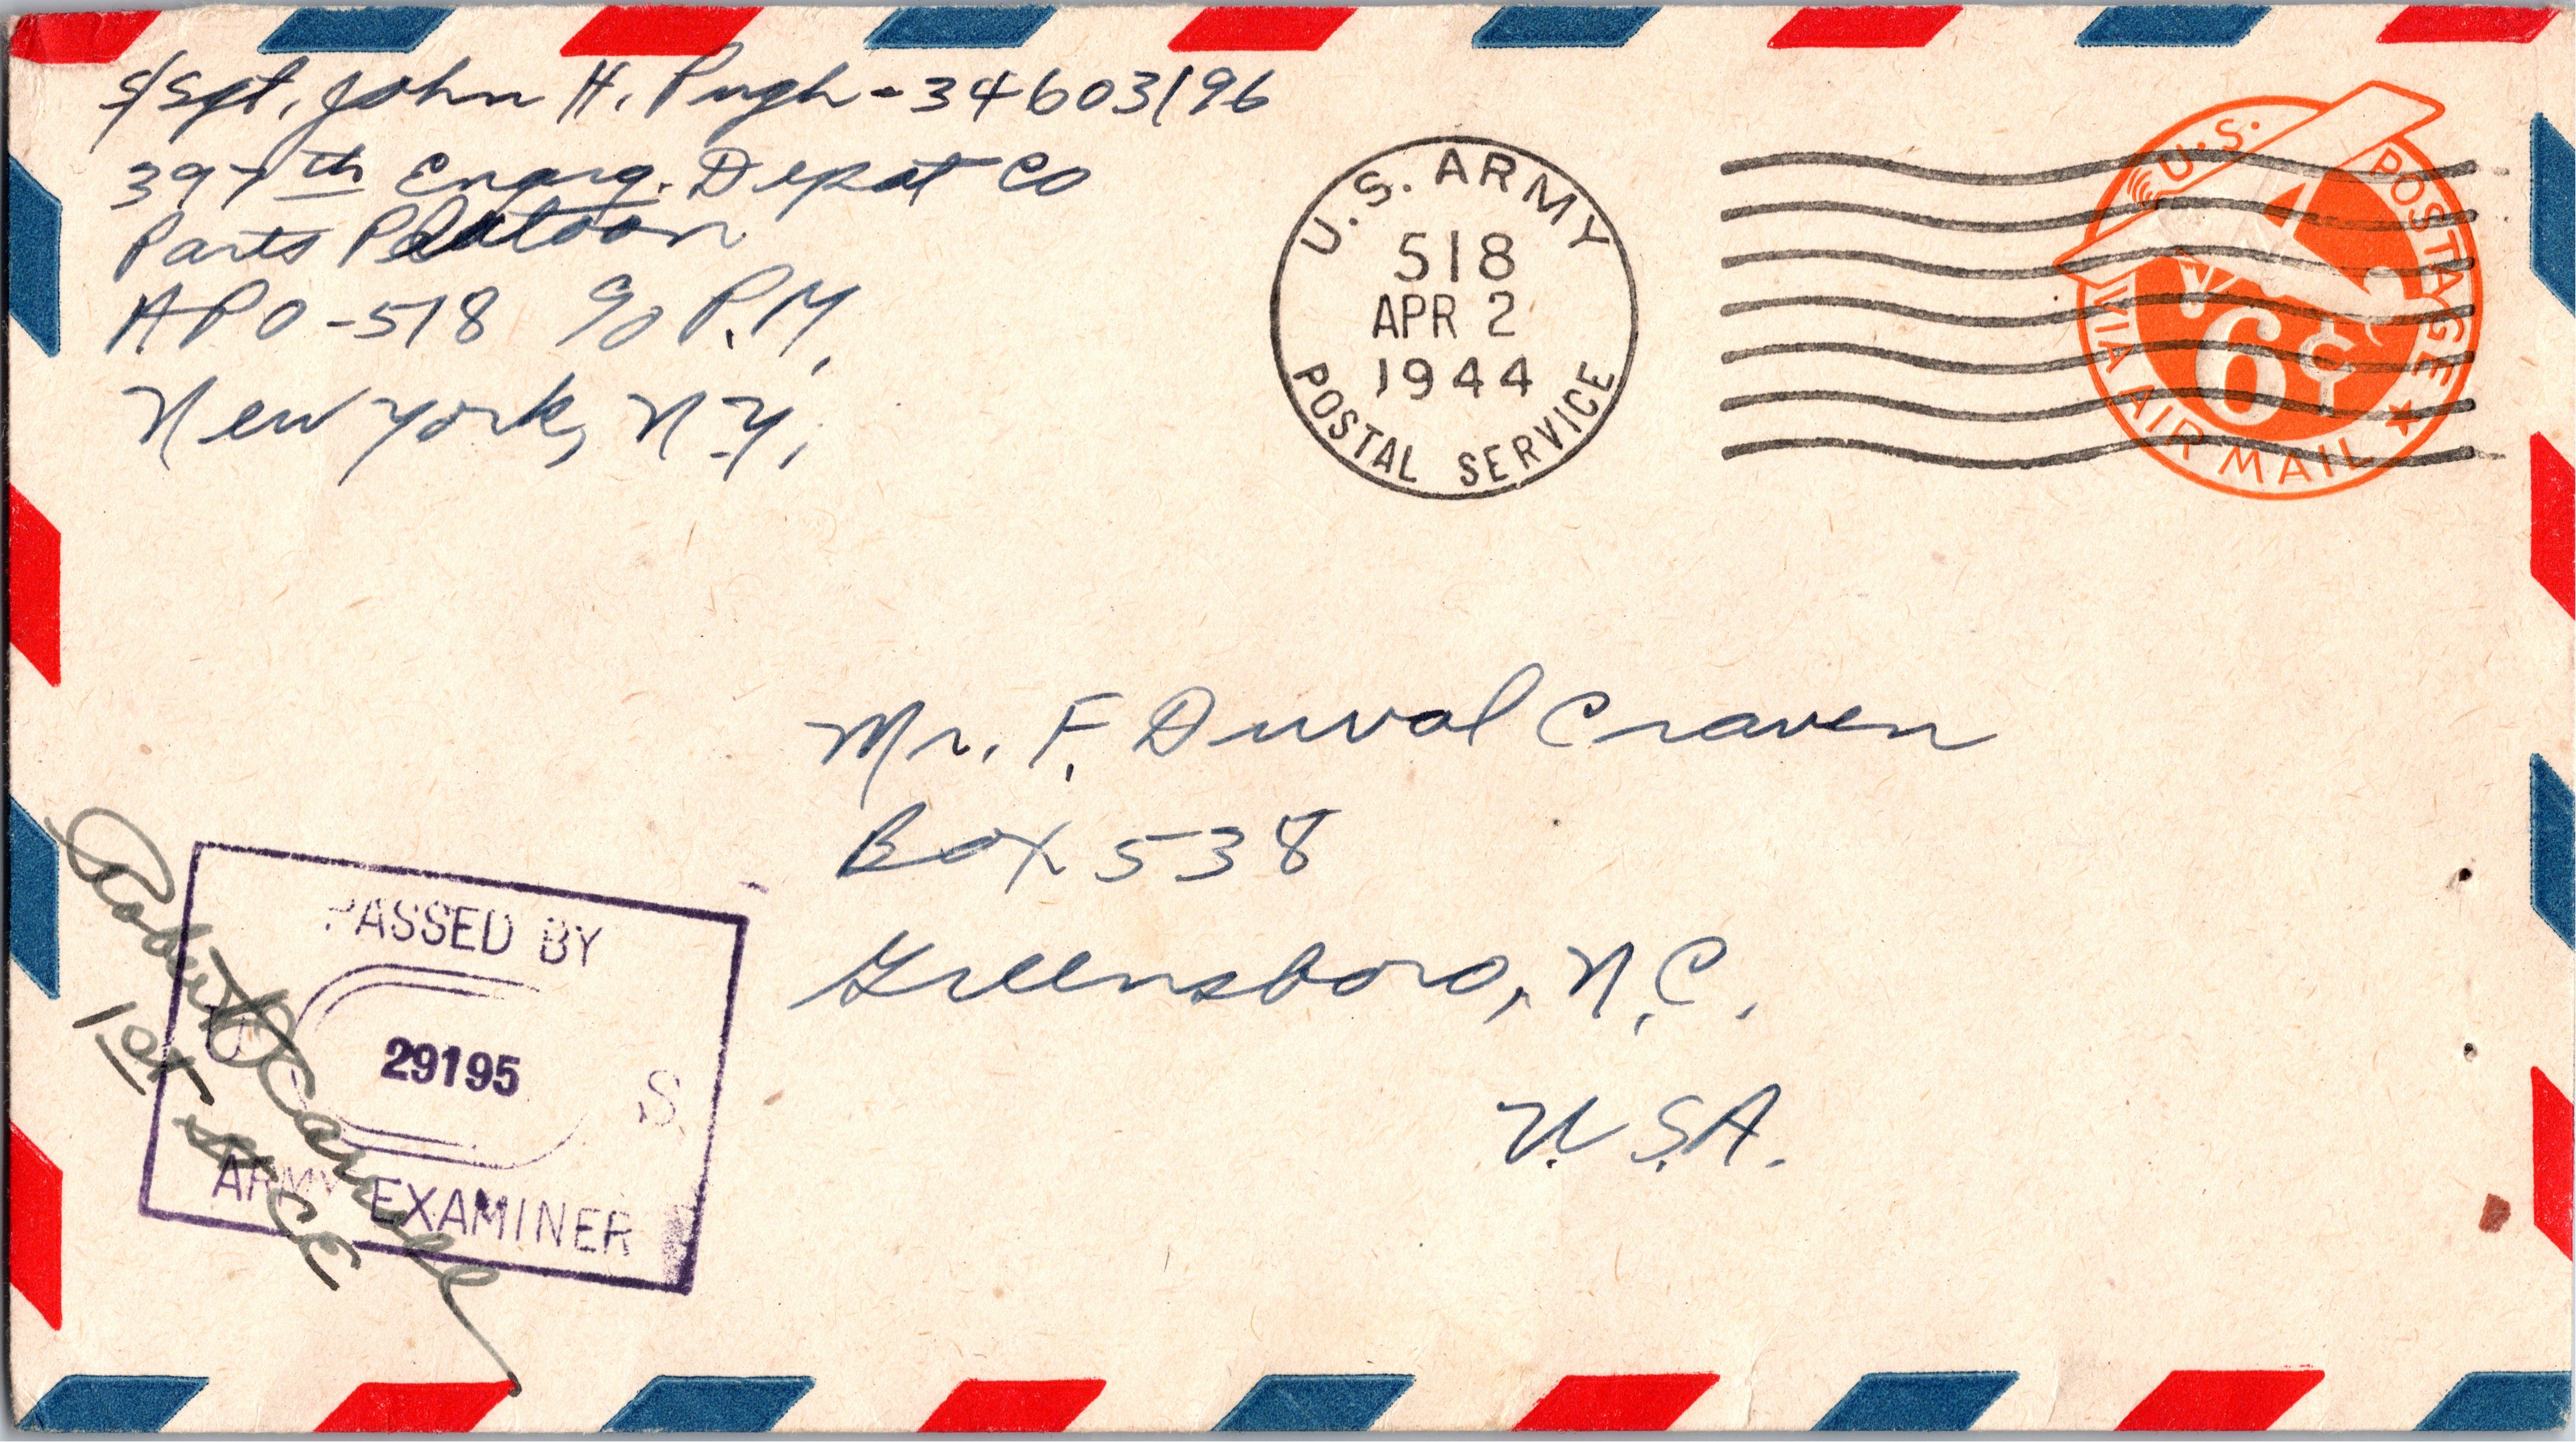 S/Sgt. John H. Pugh - 34603196
397th Engrg. Depot Co
Parts Platoon
APO - 518 c/o P.M.
New York, N.Y.
U.S. ARMY
518
APR 2
1944
POSTAL SERVICE
U.S. POSTAGE
6¢
VIA AIR MAIL
Mr. F. Duval Craven
Box 538
Greensboro, N.C.
U.S.A.
PASSED BY
U S
29195
ARMY EXAMINER
Robert
1st Lt CE